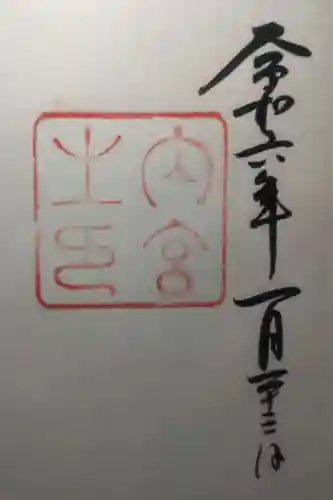 令和六年一月二十三日
内宮
之印